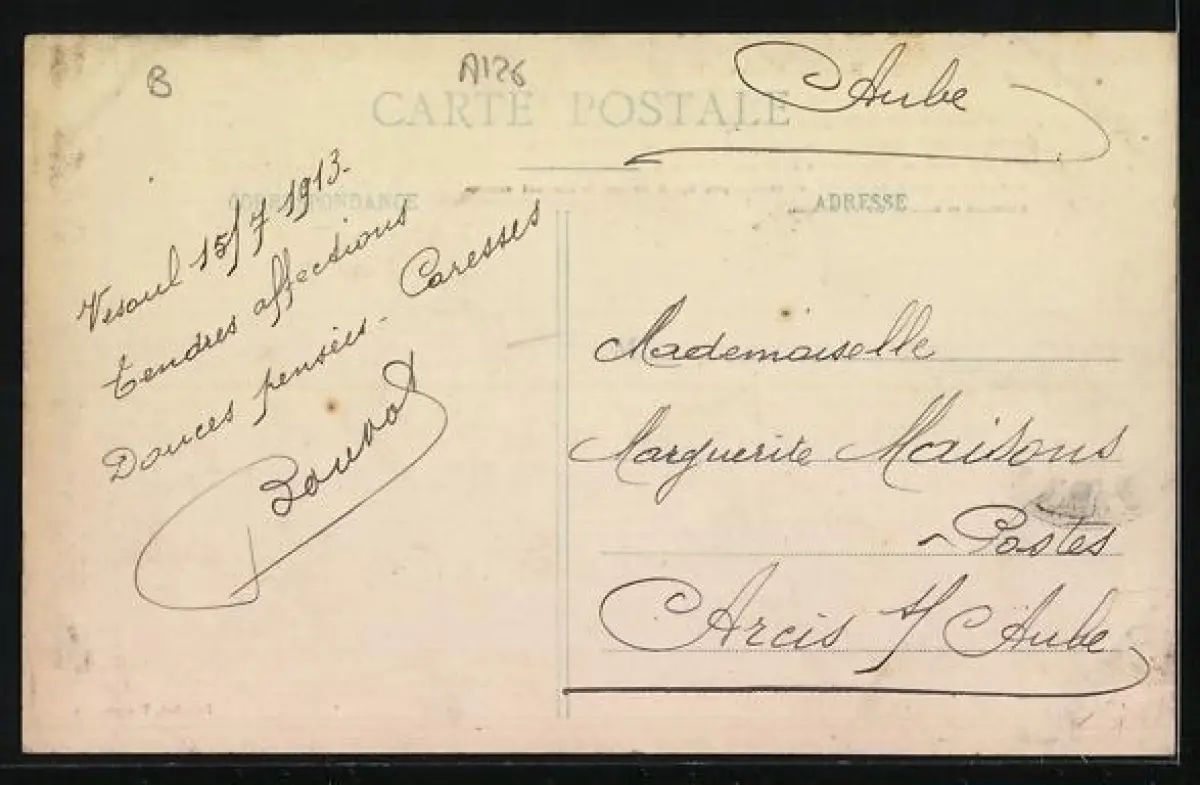 B
A126
Aube
CARTE POSTALE
CORRESPONDANCE
ADRESSE
Vesoul 15/7 1913.
tendres affections
Douces pensées - Caresses
Bouvot
Mademoiselle
Marguerite Maisons
- Postes
Arcis s/ Aube